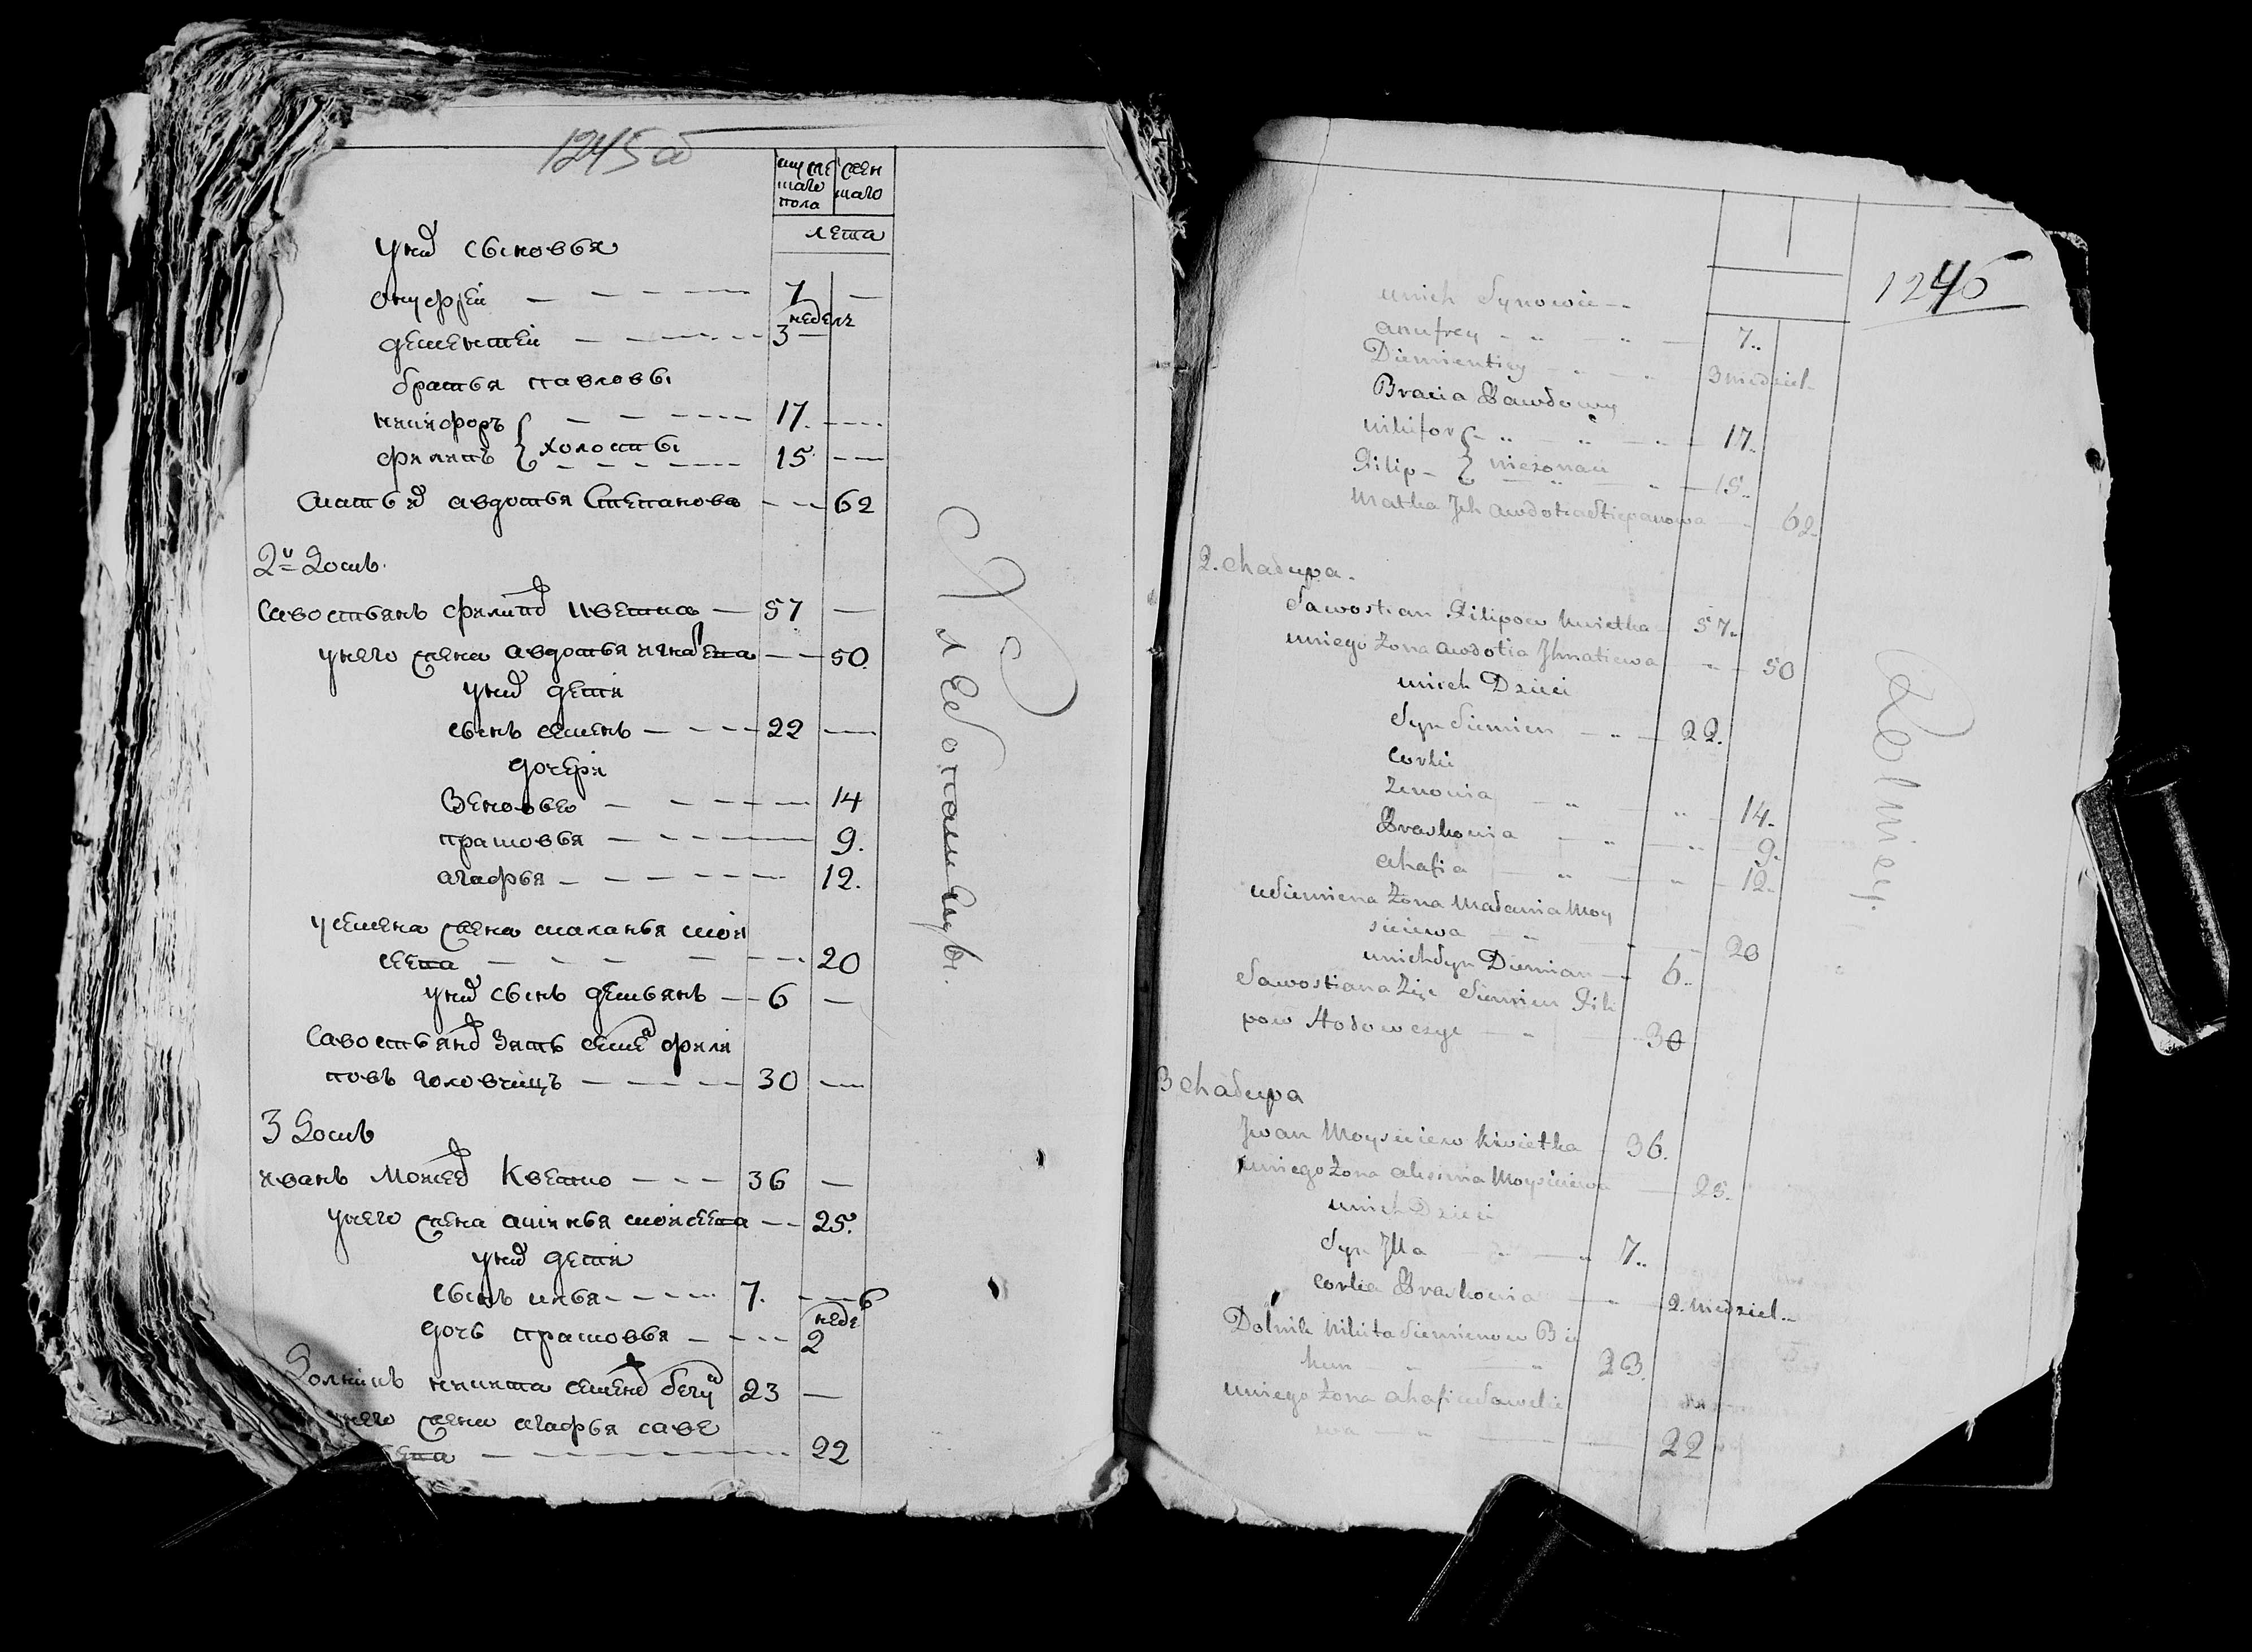 1245 об
мужескаго пола
женскаго
лета
у них сыновья
онуфрей — — — — 7 —
недель
дементей — — — — 3 —
братья павловы
никифоръ — — — — 17. — —
филипъ } холосты — — — 15 — —
мать их авдотья Степанова — — 62
2й Домъ.
Савостьянъ филипов кветка — 57 —
у него жена авдотья игнатева — — 50.
у них дети
сынъ семенъ — — — 22 —
дочери
Зеновья — — — — 14
прасковья — — — — 9.
агафья — — — — 12.
у семена жена маланья мой
сеева — — — — 20
у них сынъ демьянъ — — 6 —
Савостьянов зять семен фили
повъ головчицъ — — — — 30 —
3 Домъ
иванъ мойсеев Кветка — — — 36 —
у него жена аксинья мойсеева — — 25.
у них дети
сынъ илья — — — — 7. — —
неде
дочь прасковья — — — 2
Долникъ никита семенов бегун 23 —
него жена агафья саве
ева — — — — 22
Хлебопашцы.
1246
unich Synowie —
anufrey — „ — „ — 7..
Diemientiey — „ — „ 3 niedziel.
Bracia Pawłowy
nikifor — „ — „ — 17..
Filip — } nieżonaci „ — 15..
Matka Jch awdotia Stiepanowa — 62.
2. Chałupa.
Sawostian Filipow kwietka 57..
uniego żona awdotia Jhnatiewa „ — 50
unich Dzieci
Syn Siemien — „ — 22.
corki
Zenowia — „ — „ — 14.
Praskowia — „ — „ — 9.
ahafia — „ — „ — 12..
uSiemiena żona Małania Moy
siejewa — „ — „ — 20
unich Syn Diemian — 6..
Sawostiana Zięć Siemien Fili
pow Hołowczyc — „ — 30
3 Chałupa
Jwan Moysiejew kwietka 36.
uniego żona aksinia Moysiejewa — 25.
unich Dzieci
Syn Jlla — „ — „ 7..
corka Praskowia — „ — 2. niedziel..
Dolnik Nikita Siemienow Bie
hun — „ — „ 23.
uniego żona ahafia Saweli
wa — „ — — 22
Rolnicy.